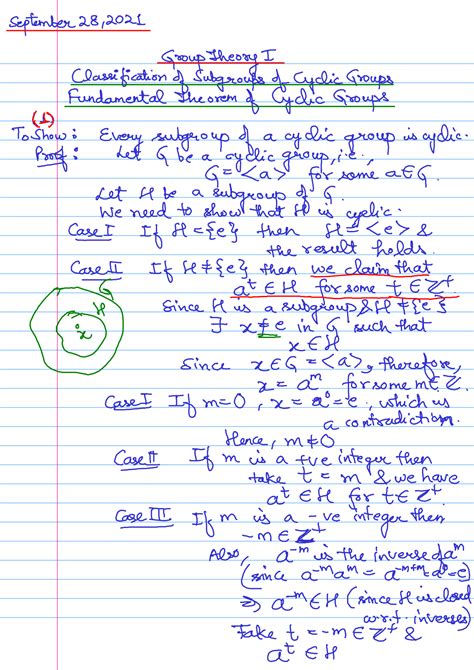 September 28, 2021
Group Theory I
Classification of Subgroups of Cyclic Groups
Fundamental Theorem of Cyclic Groups
(1)
To Show: Every subgroup of a cyclic group is cyclic.
Proof: Let G be a cyclic group, i.e.,
G = <a> for some a ∈ G.
Let H be a subgroup of G.
We need to show that H is cyclic.
Case I If H = {e} then H = <e> &
the result holds.
Case II If H ≠ {e} then we claim that
a^t ∈ H for some t ∈ Z^+.
Since H is a subgroup & H ≠ {e}
∃ x ≠ e in G such that
x ∈ H
H
x
Since x ∈ G = <a>, therefore,
x = a^m for some m ∈ Z.
Case I If m = 0, x = a^0 = e, which is
a contradiction.
Hence, m ≠ 0
Case II If m is a +ve integer then
take t = m & we have
a^t ∈ H for t ∈ Z^+
Case III If m is a -ve integer then
-m ∈ Z^+
Also, a^-m is the inverse of a^m
(since a^-m a^m = a^-m+m = a^0 = e)
⇒ a^-m ∈ H (since H is closed
w.r.t. inverses)
Take t = -m ∈ Z^+ &
a^t ∈ H